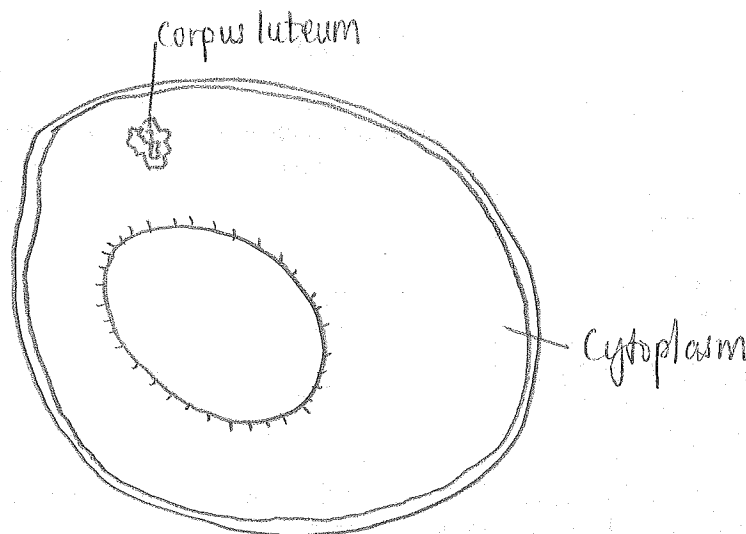 Corpus luteum
Cytoplasm